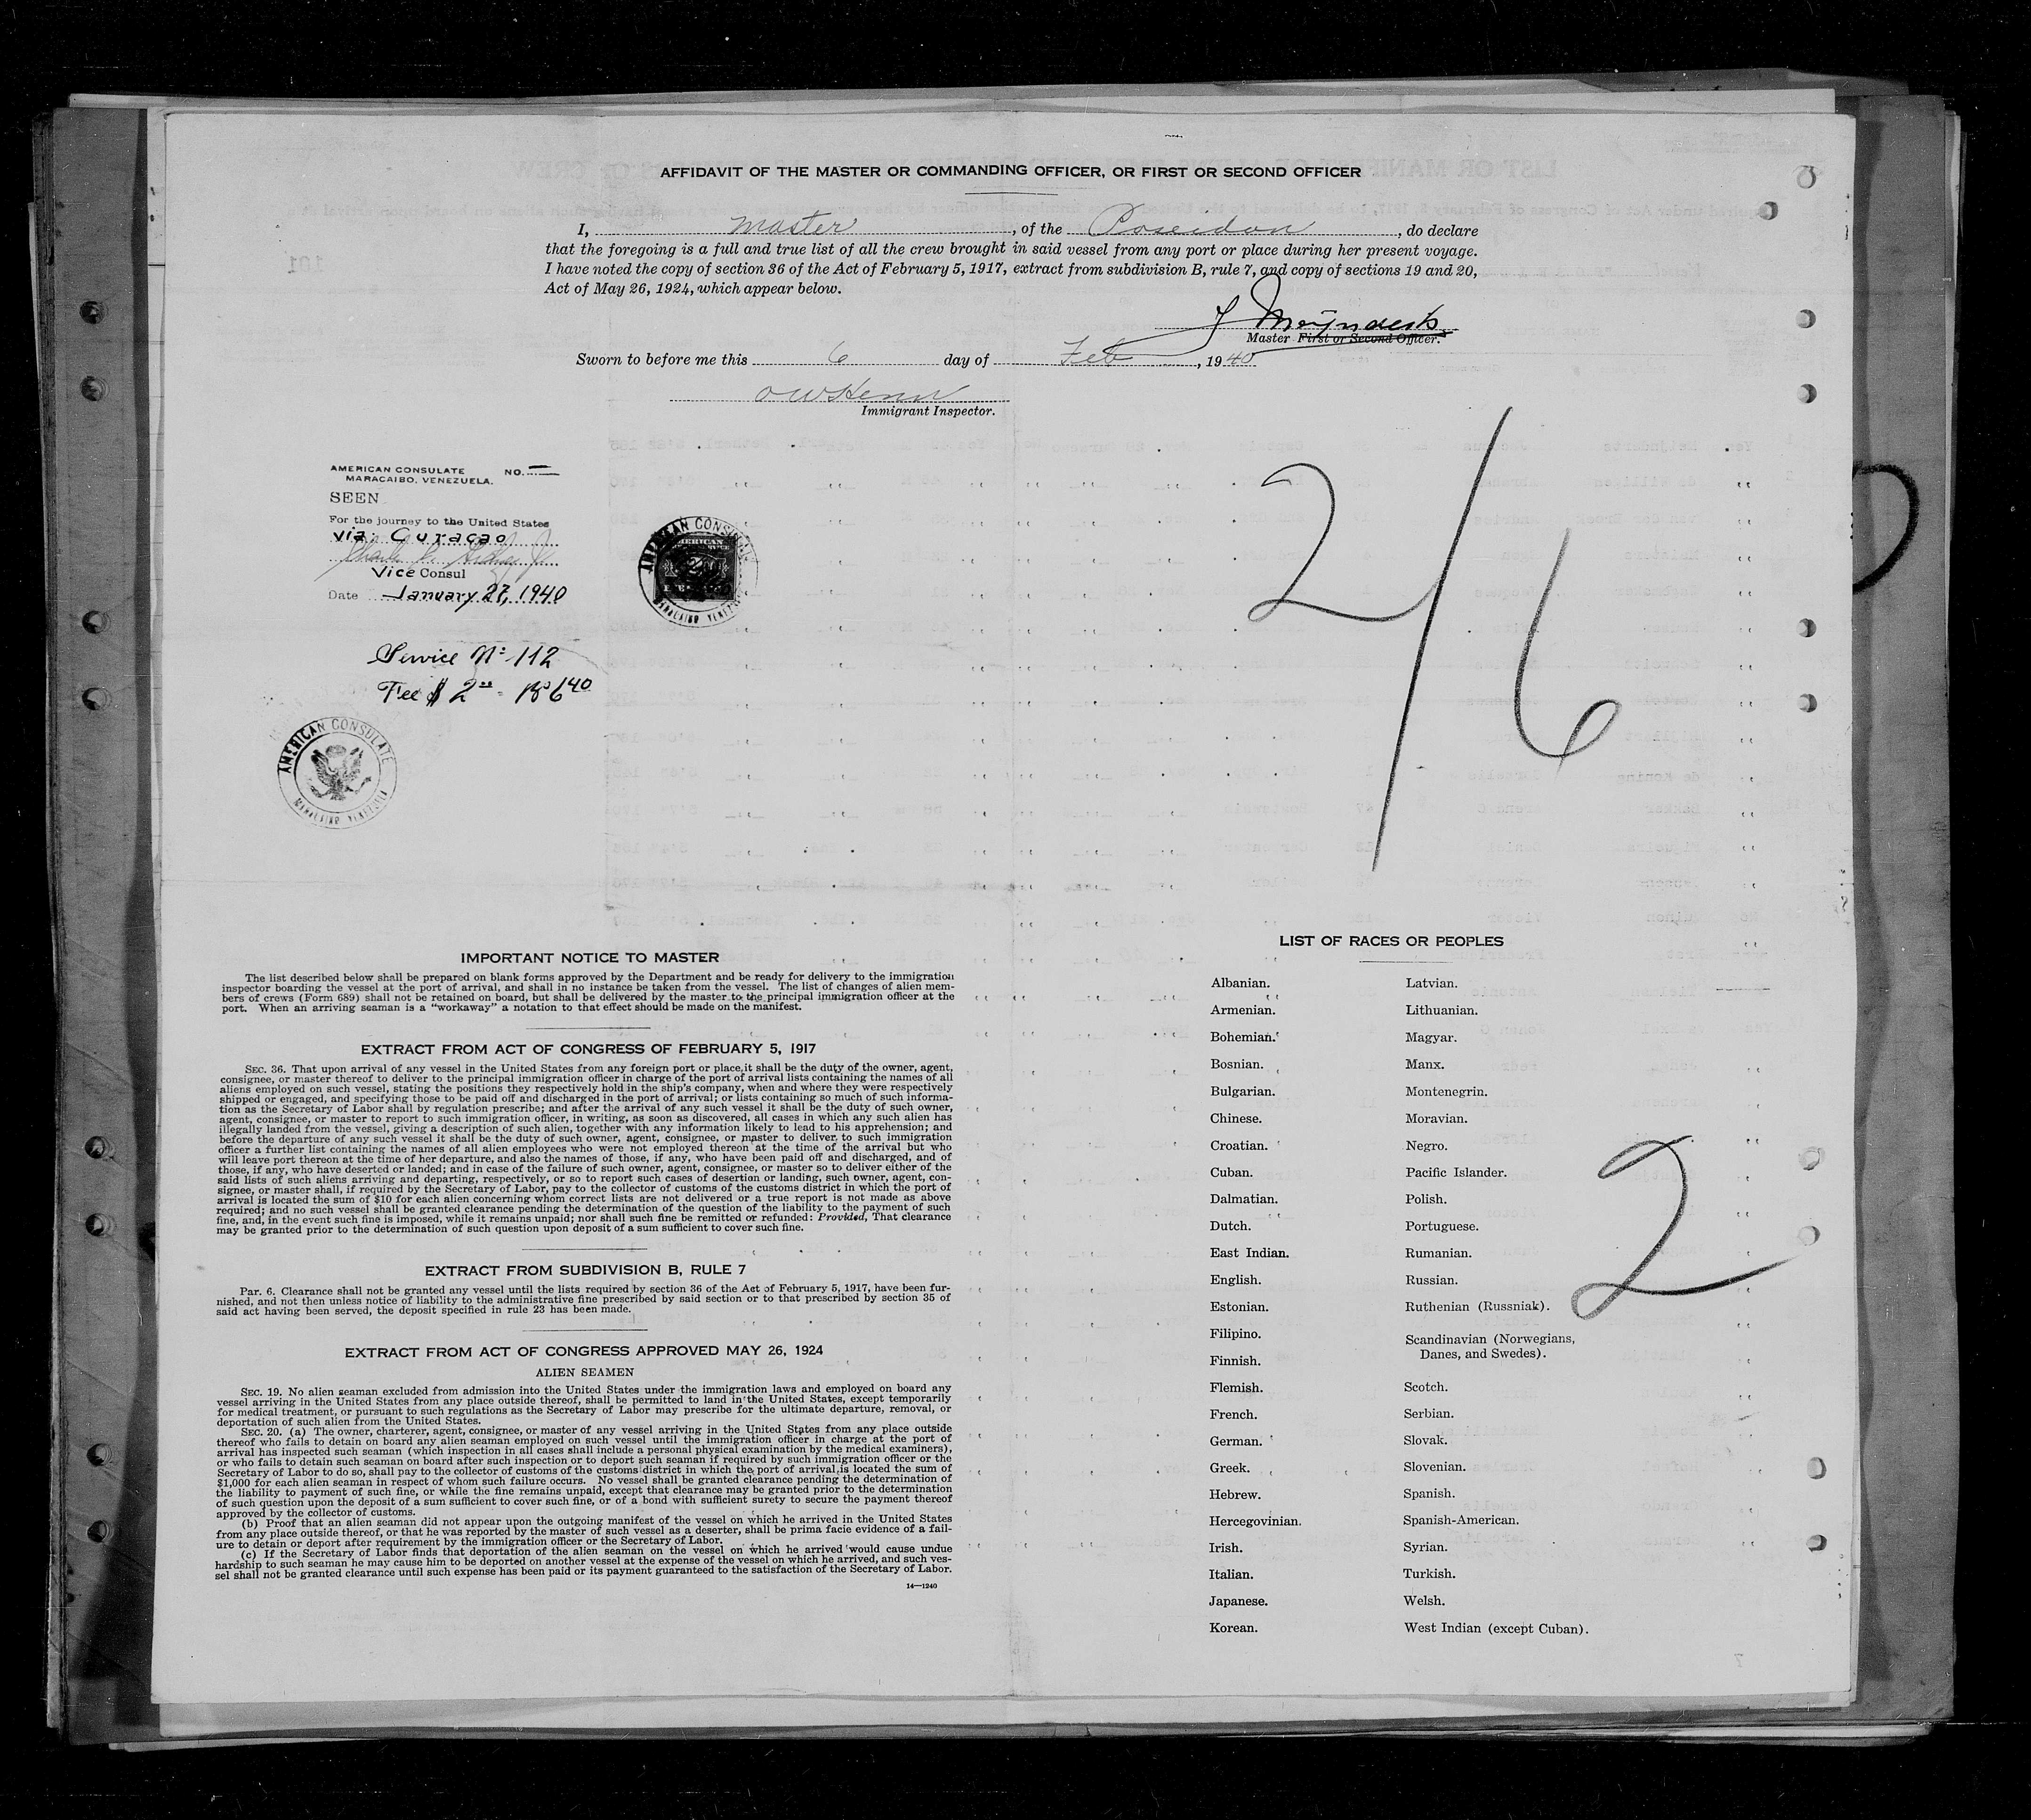 AFFIDAVIT OF THE MASTER OR COMMANDING OFFICER, OR FIRST OR SECOND OFFICER
I, Master, of the Poseidon, do declare
that the foregoing is a full and true list of all the crew brought in said vessel from any port or place during her present voyage.
I have noted the copy of section 36 of the Act of February 5, 1917, extract from subdivision B, rule 7, and copy of sections 19 and 20,
Act of May 26, 1924, which appear below.
Master First or Second Officer.
Sworn to before me this 6 day of Feb, 1940
Immigrant Inspector.
AMERICAN CONSULATE NO. —
MARACAIBO, VENEZUELA.
SEEN
For the journey to the United States
via Curaçao
Vice Consul
Date January 27, 1940
AMERICAN CONSULATE
MARACAIBO VENEZUELA
Service Nº 112
Fee $ 2.00 = Bs 6.40
AMERICAN CONSULATE
MARACAIBO VENEZUELA
2/6
IMPORTANT NOTICE TO MASTER
The list described below shall be prepared on blank forms approved by the Department and be ready for delivery to the immigration
inspector boarding the vessel at the port of arrival, and shall in no instance be taken from the vessel. The list of changes of alien mem-
bers of crews (Form 689) shall not be retained on board, but shall be delivered by the master to the principal immigration officer at the
port. When an arriving seaman is a "workaway" a notation to that effect should be made on the manifest.
EXTRACT FROM ACT OF CONGRESS OF FEBRUARY 5, 1917
SEC. 36. That upon arrival of any vessel in the United States from any foreign port or place, it shall be the duty of the owner, agent,
consignee, or master thereof to deliver to the principal immigration officer in charge of the port of arrival lists containing the names of all
aliens employed on such vessel, stating the positions they respectively hold in the ship's company, when and where they were respectively
shipped or engaged, and specifying those to be paid off and discharged in the port of arrival; or lists containing so much of such informa-
tion as the Secretary of Labor shall by regulation prescribe; and after the arrival of any such vessel it shall be the duty of such owner,
agent, consignee, or master to report to such immigration officer, in writing, as soon as discovered, all cases in which any such alien has
illegally landed from the vessel, giving a description of such alien, together with any information likely to lead to his apprehension; and
before the departure of any such vessel it shall be the duty of such owner, agent, consignee, or master to deliver to such immigration
officer a further list containing the names of all alien employees who were not employed thereon at the time of the arrival but who
will leave port thereon at the time of her departure, and also the names of those, if any, who have been paid off and discharged, and of
those, if any, who have deserted or landed; and in case of the failure of such owner, agent, consignee, or master so to deliver either of the
said lists of such aliens arriving and departing, respectively, or so to report such cases of desertion or landing, such owner, agent, con-
signee, or master shall, if required by the Secretary of Labor, pay to the collector of customs of the customs district in which the port of
arrival is located the sum of $10 for each alien concerning whom correct lists are not delivered or a true report is not made as above
required; and no such vessel shall be granted clearance pending the determination of the question of the liability to the payment of such
fine, and, in the event such fine is imposed, while it remains unpaid; nor shall such fine be remitted or refunded: Provided, That clearance
may be granted prior to the determination of such question upon deposit of a sum sufficient to cover such fine.
EXTRACT FROM SUBDIVISION B, RULE 7
Par. 6. Clearance shall not be granted any vessel until the lists required by section 36 of the Act of February 5, 1917, have been fur-
nished, and not then unless notice of liability to the administrative fine prescribed by said section or to that prescribed by section 35 of
said act having been served, the deposit specified in rule 23 has been made.
EXTRACT FROM ACT OF CONGRESS APPROVED MAY 26, 1924
ALIEN SEAMEN
SEC. 19. No alien seaman excluded from admission into the United States under the immigration laws and employed on board any
vessel arriving in the United States from any place outside thereof, shall be permitted to land in the United States, except temporarily
for medical treatment, or pursuant to such regulations as the Secretary of Labor may prescribe for the ultimate departure, removal, or
deportation of such alien from the United States.
SEC. 20. (a) The owner, charterer, agent, consignee, or master of any vessel arriving in the United States from any place outside
thereof who fails to detain on board any alien seaman employed on such vessel until the immigration officer in charge at the port of
arrival has inspected such seaman (which inspection in all cases shall include a personal physical examination by the medical examiners),
or who fails to detain such seaman on board after such inspection or to deport such seaman if required by such immigration officer or the
Secretary of Labor to do so, shall pay to the collector of customs of the customs district in which the port of arrival is located the sum of
$1,000 for each alien seaman in respect of whom such failure occurs. No vessel shall be granted clearance pending the determination of
the liability to payment of such fine, or while the fine remains unpaid, except that clearance may be granted prior to the determination
of such question upon the deposit of a sum sufficient to cover such fine, or of a bond with sufficient surety to secure the payment thereof
approved by the collector of customs.
(b) Proof that an alien seaman did not appear upon the outgoing manifest of the vessel on which he arrived in the United States
from any place outside thereof, or that he was reported by the master of such vessel as a deserter, shall be prima facie evidence of a fail-
ure to detain or deport after requirement by the immigration officer or the Secretary of Labor.
(c) If the Secretary of Labor finds that deportation of the alien seaman on the vessel on which he arrived would cause undue
hardship to such seaman he may cause him to be deported on another vessel at the expense of the vessel on which he arrived, and such ves-
sel shall not be granted clearance until such expense has been paid or its payment guaranteed to the satisfaction of the Secretary of Labor.
14—1240
LIST OF RACES OR PEOPLES
Albanian.
Armenian.
Bohemian.
Bosnian.
Bulgarian.
Chinese.
Croatian.
Cuban.
Dalmatian.
Dutch.
East Indian.
English.
Estonian.
Filipino.
Finnish.
Flemish.
French.
German.
Greek.
Hebrew.
Hercegovinian.
Irish.
Italian.
Japanese.
Korean.
Latvian.
Lithuanian.
Magyar.
Manx.
Montenegrin.
Moravian.
Negro.
Pacific Islander.
Polish.
Portuguese.
Rumanian.
Russian.
Ruthenian (Russniak).
Scandinavian (Norwegians,
Danes, and Swedes).
Scotch.
Serbian.
Slovak.
Slovenian.
Spanish.
Spanish-American.
Syrian.
Turkish.
Welsh.
West Indian (except Cuban).
2